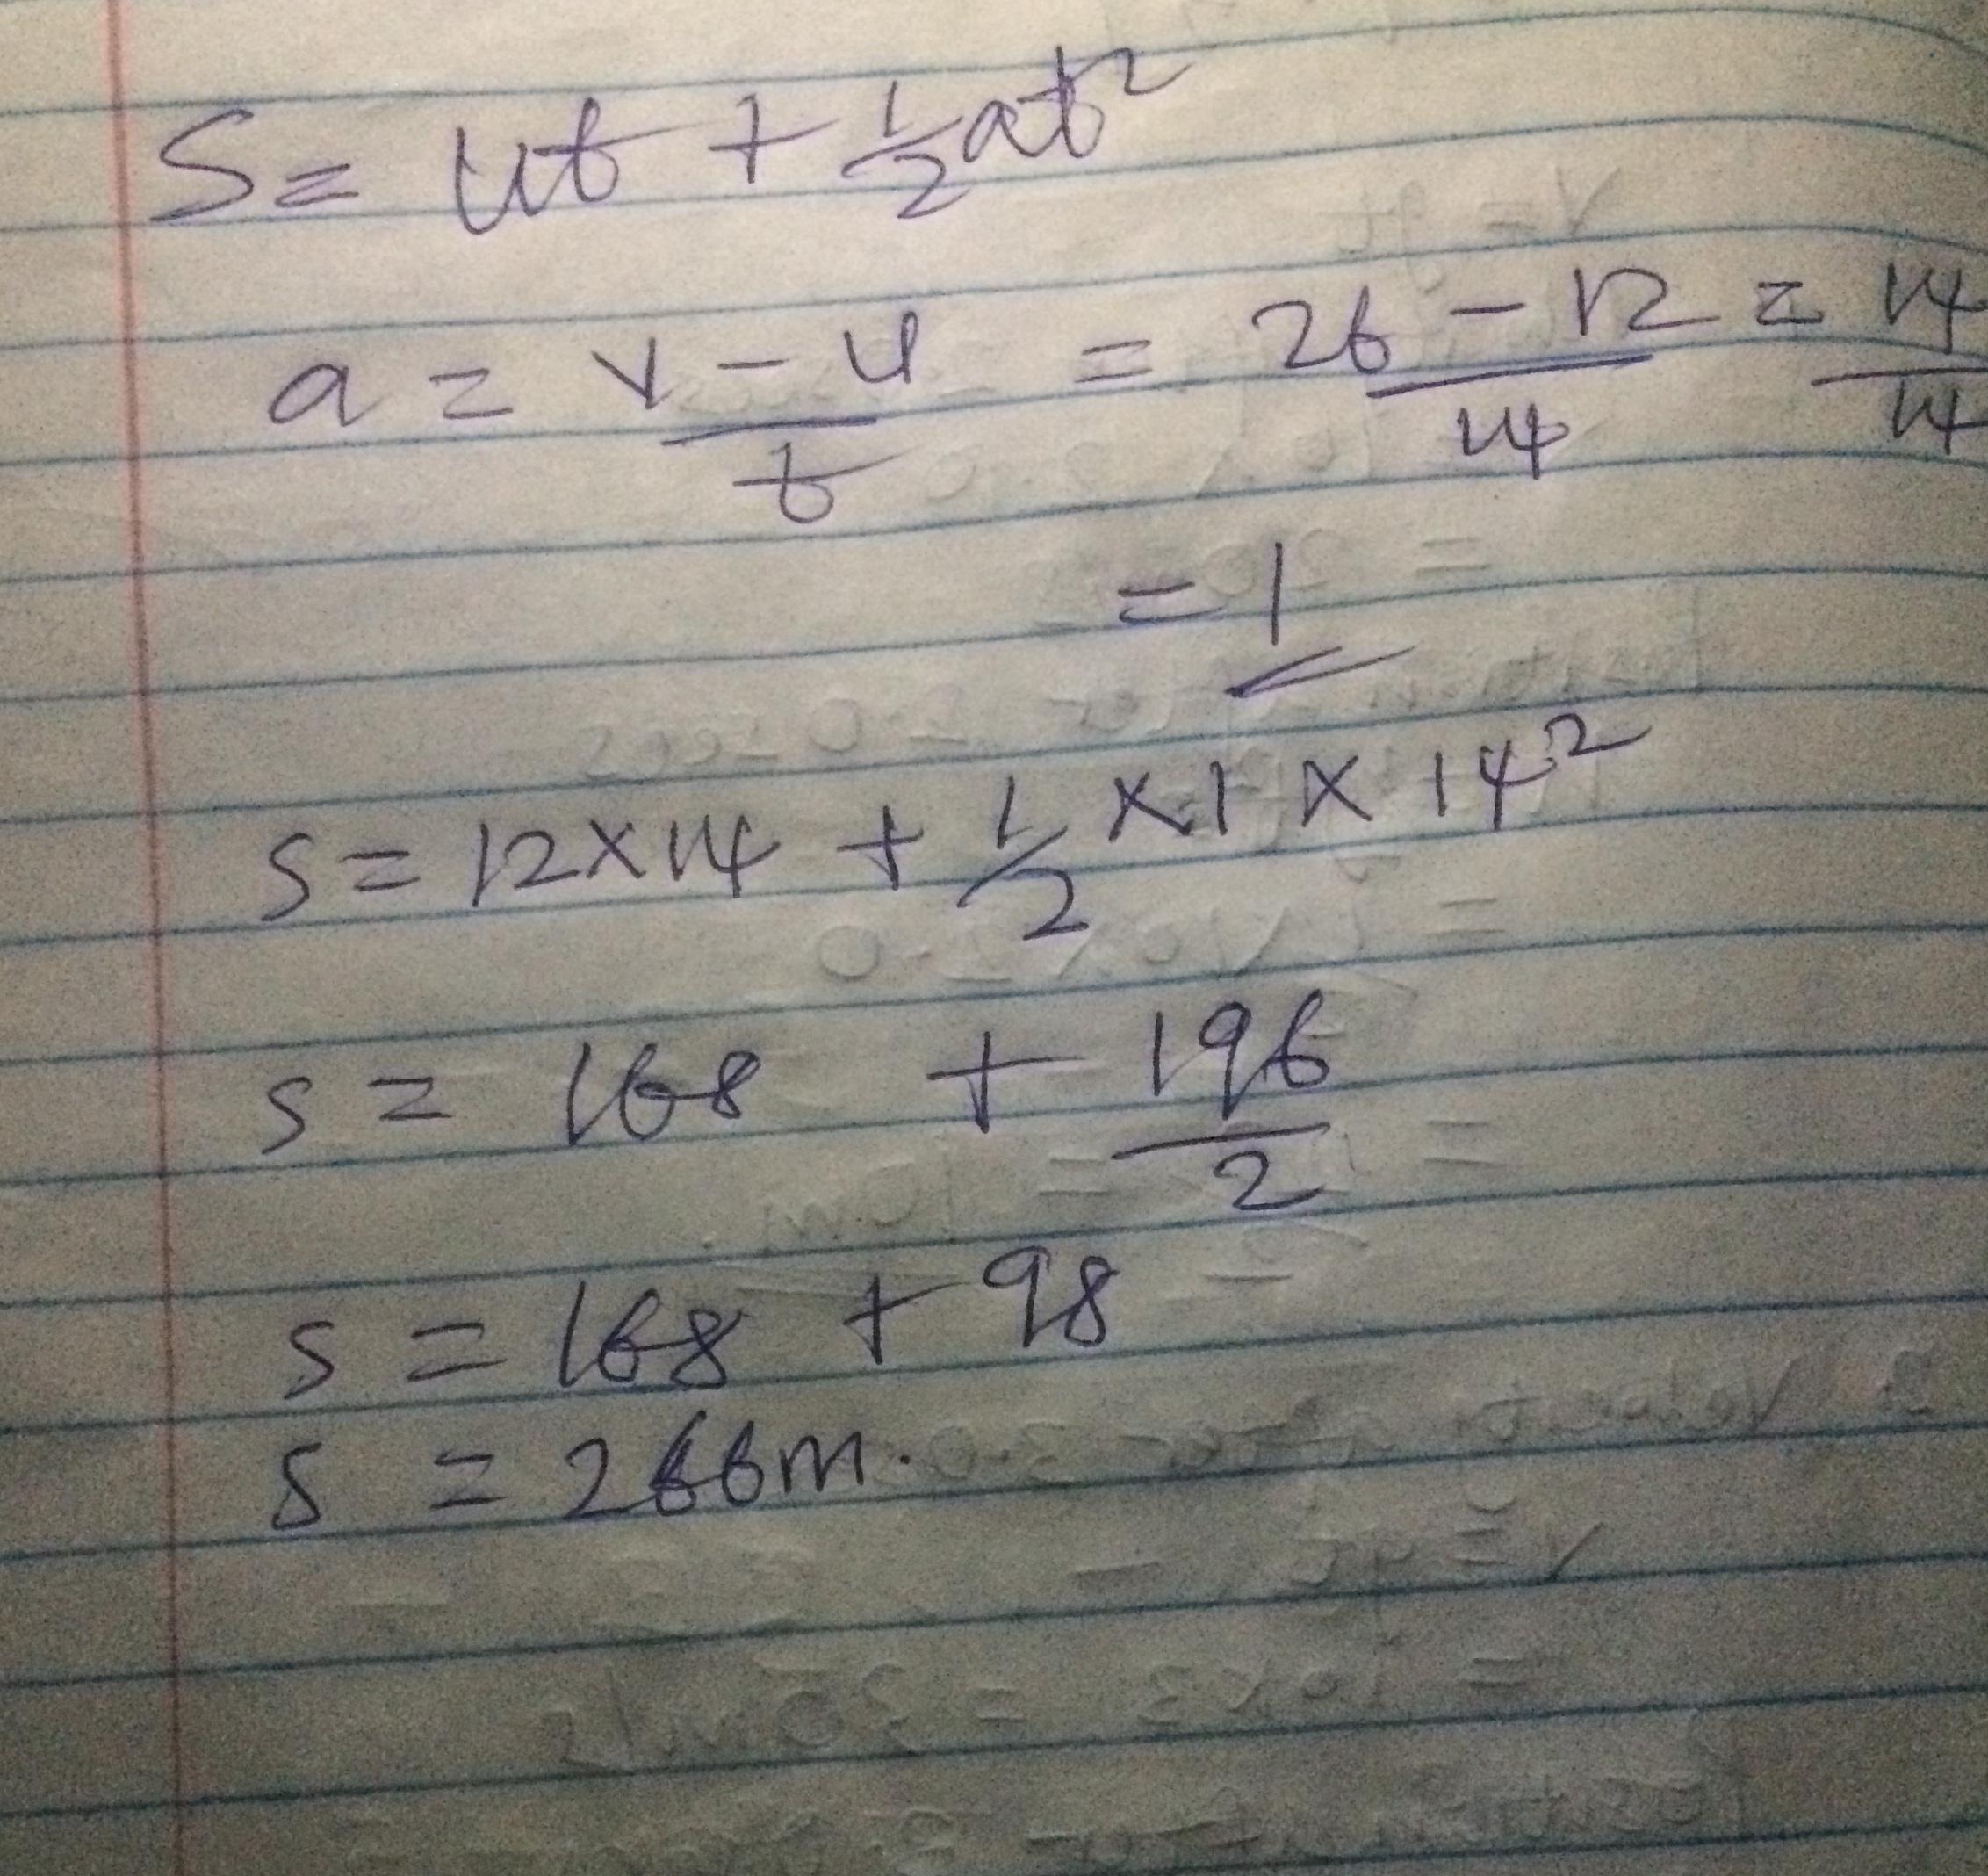 S = ut + 1/2 at²
a = v - u / t = 26 - 12 / 14 = 14 / 14
= 1
s = 12 × 14 + 1/2 × 1 × 14²
s = 168 + 196 / 2
s = 168 + 98
s = 266m.